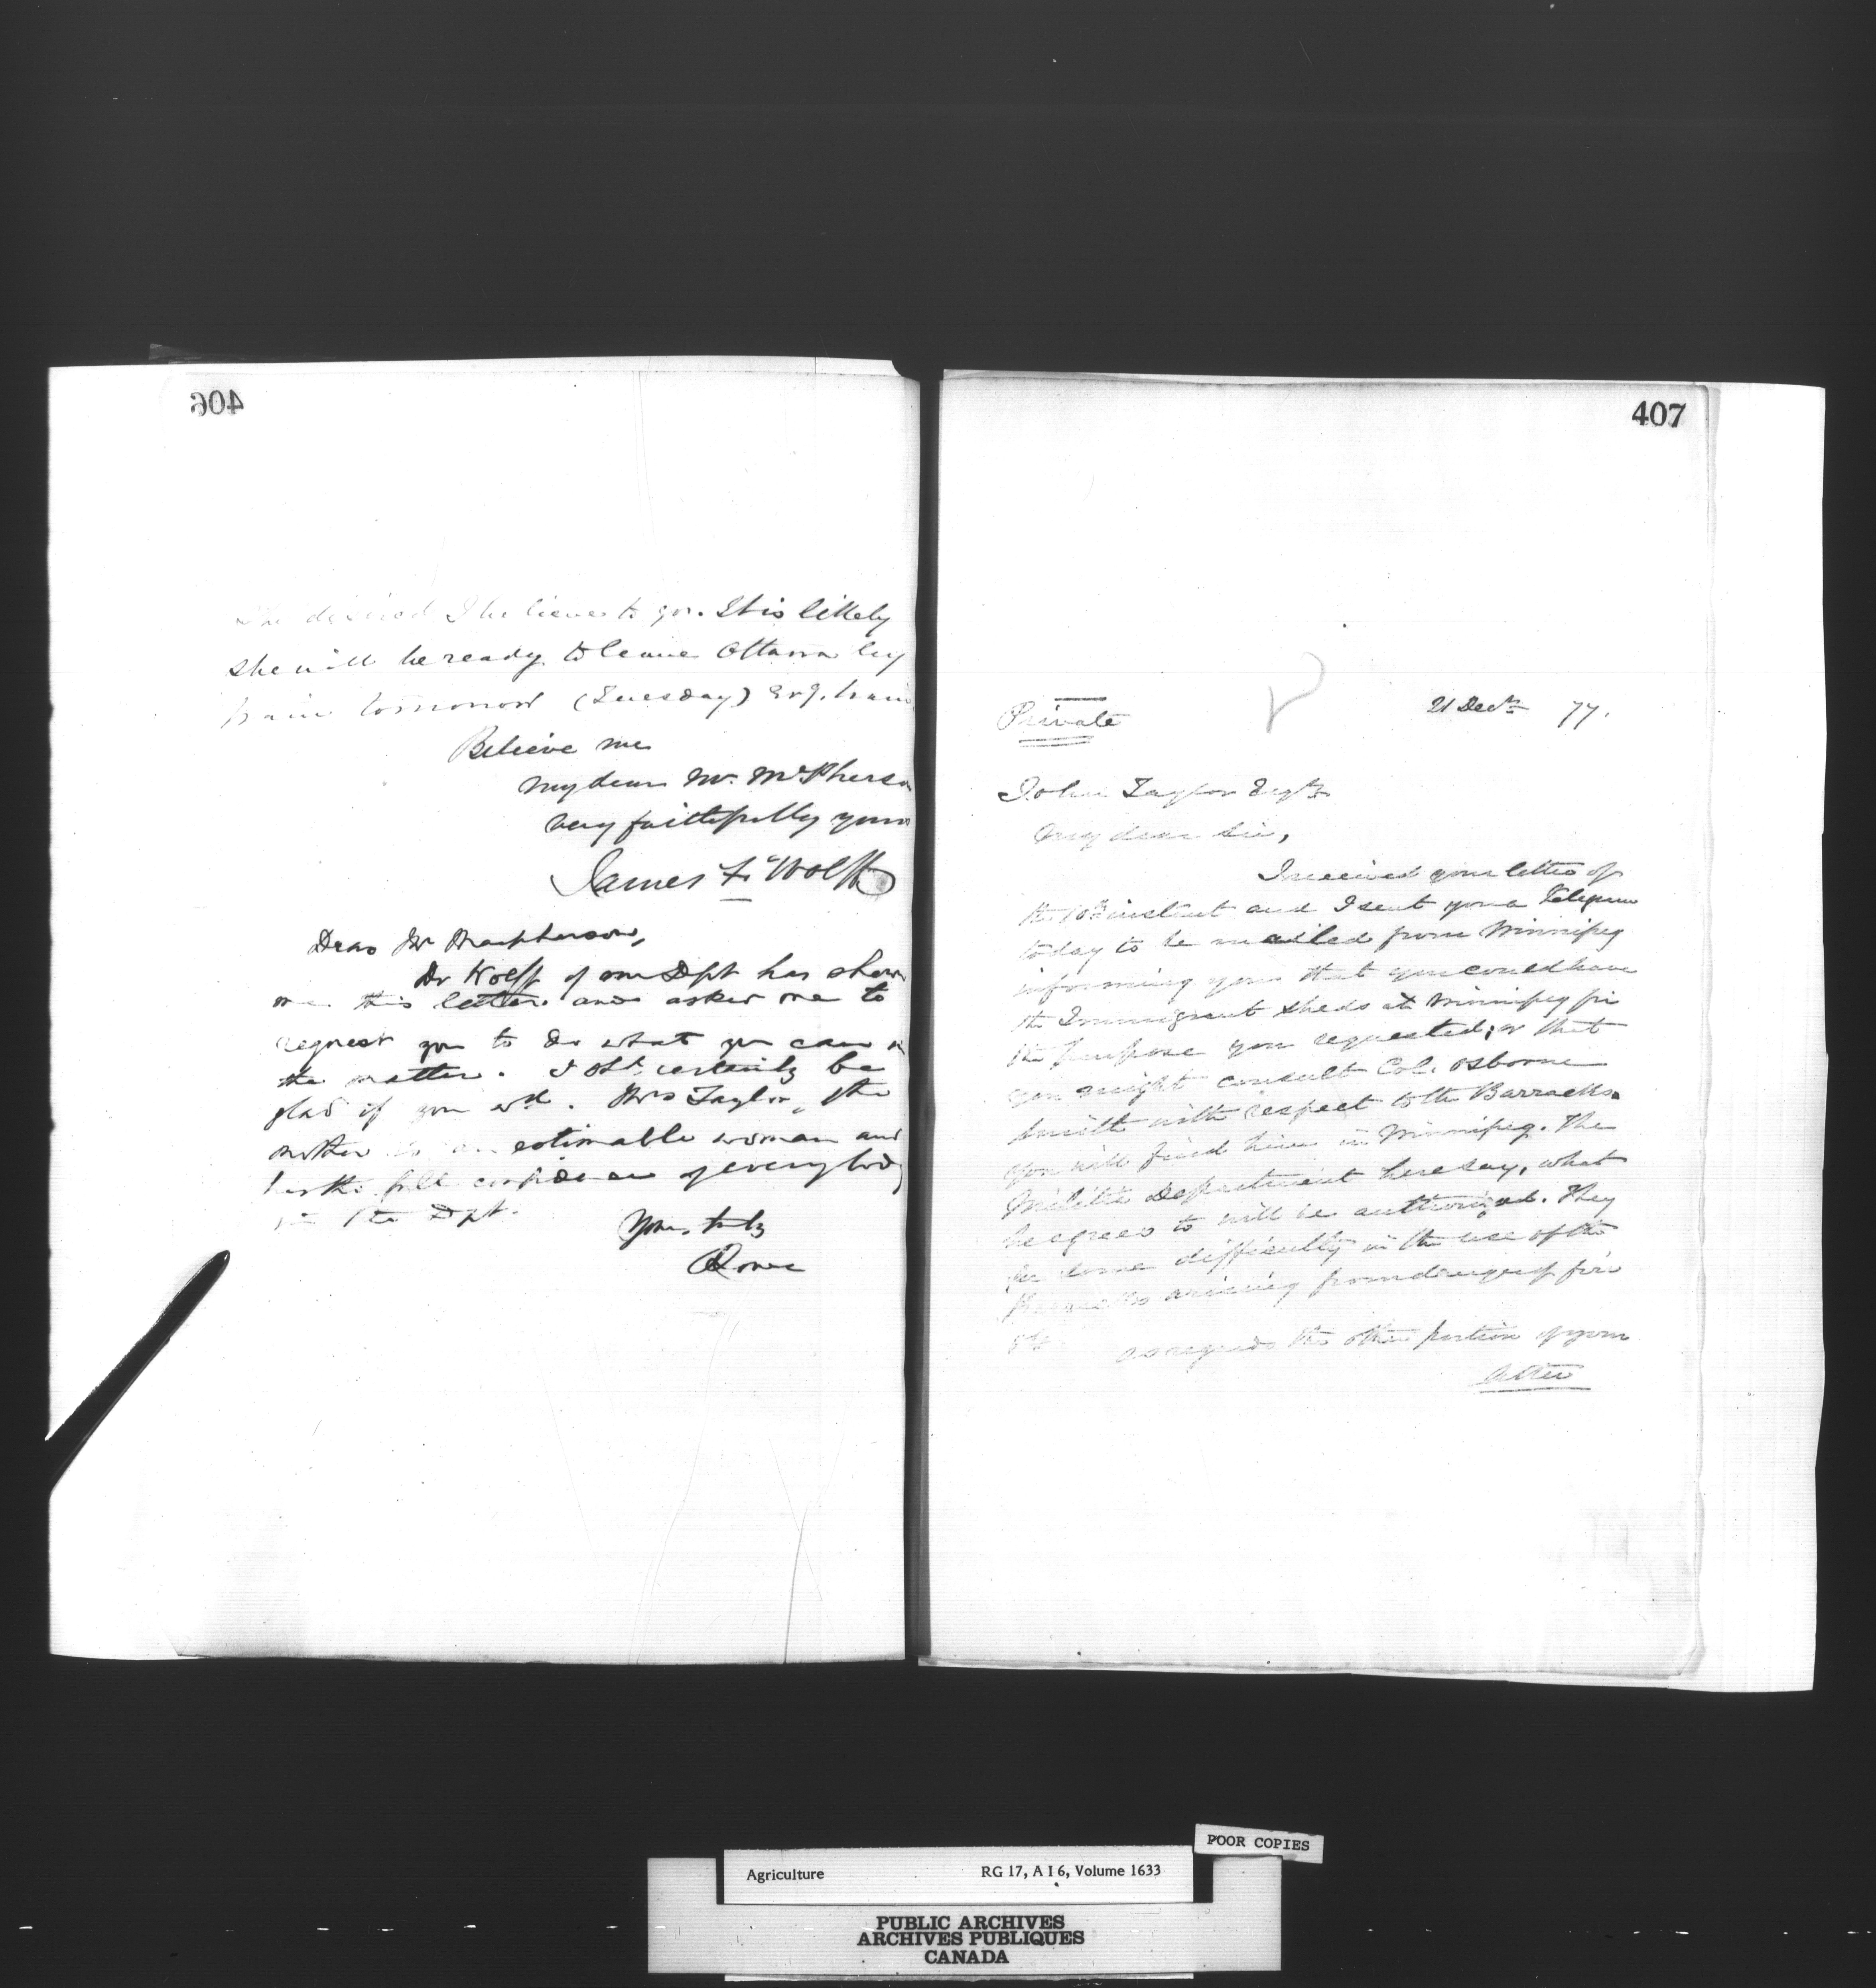 406
she desired I believe to go. It is likely
she will be ready to leave Ottawa by
train tomorrow (Tuesday) Evg. train
Believe me
my dear Mr. McPherson
very faithfully yours
James F. Wolff
Dear Mr Macpherson,
Dr Wolff of our Dept has shown
me this letter and asked me to
request you to do what you can in
the matter. I shd certainly be
glad if you wd. Mrs Taylor, the
mother is an estimable woman and
has the full confidence of everybody
in the Dpt.
Yours truly
Lowe
407
Private
21 Decr 77.
John Taylor Esqre
My dear Sir,
I received your letter of
the 10th instant and I sent you a Telegram
today to be mailed from Winnipeg
informing you that you could have
the Immigrant Sheds at Winnipeg for
the purpose you requested; or that
you might consult Col. Osborne
Smith with respect to the Barracks.
You will find him in Winnipeg. The
Militia Department here say, what
he agrees to will be authorized. They
some difficulty in the use of the
Barracks arising from danger of fire
&c.
As regards the other portion of your
letter
POOR COPIES
Agriculture RG 17, A I 6, Volume 1633
PUBLIC ARCHIVES
ARCHIVES PUBLIQUES
CANADA